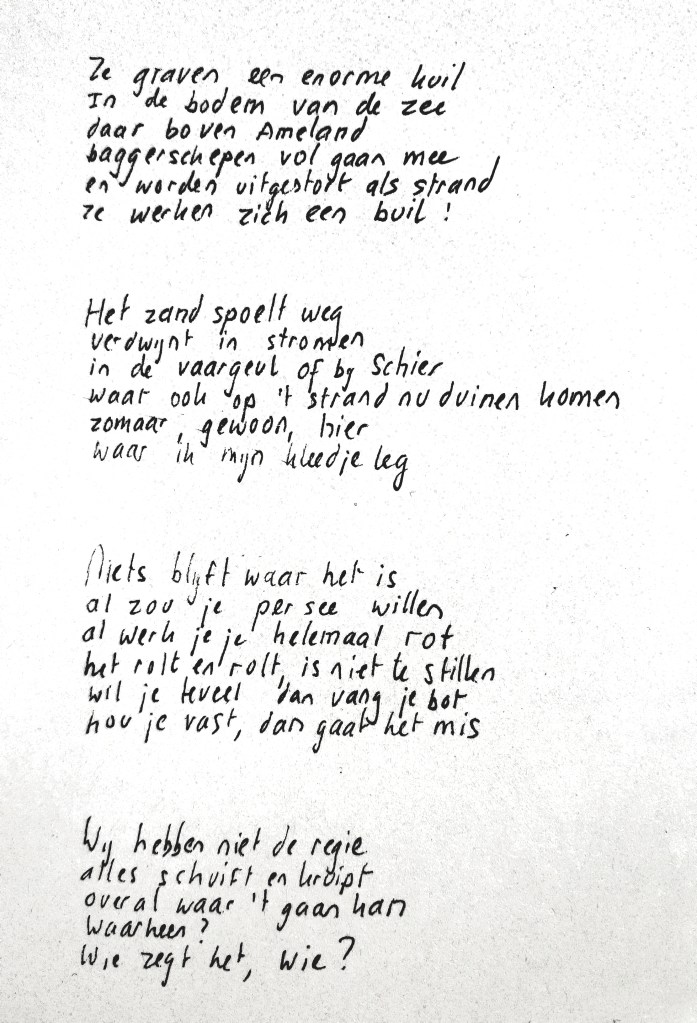 Ze graven een enorme kuil
In de bodem van de zee
daar boven Ameland
baggerschepen vol gaan mee
en worden uitgestort als strand
ze werken zich een buil !
Het zand spoelt weg
verdwynt in stromen
in de vaargeul of by Schier
waar ook op 't strand nu duinen komen
zomaar, gewoon, hier
waar ik myn kleedje leg
Niets blyft waar het is
al zou je per see willen
al werk je je helemaal rot
het rolt en rolt, is niet te stillen
wil je teveel dan vang je bot
hou je vast, dan gaat het mis
Wy hebben niet de regie
alles schuift en kruipt
overal waar 't gaan kan
Waarheen?
Wie zegt het, wie?